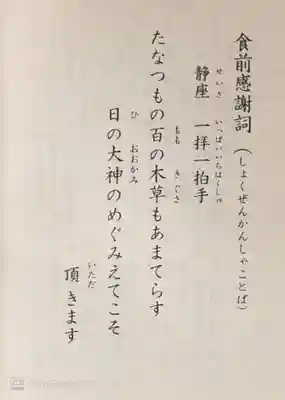 食前感謝詞(しょくぜんかんしゃことば)
静座 一拝一拍手
せいざ いっぱいいちはくしゅ
たなつもの百の木草もあまてらす
もも きぐさ
日の大神のめぐみえてこそ
ひ おおかみ
頂きます
いただ